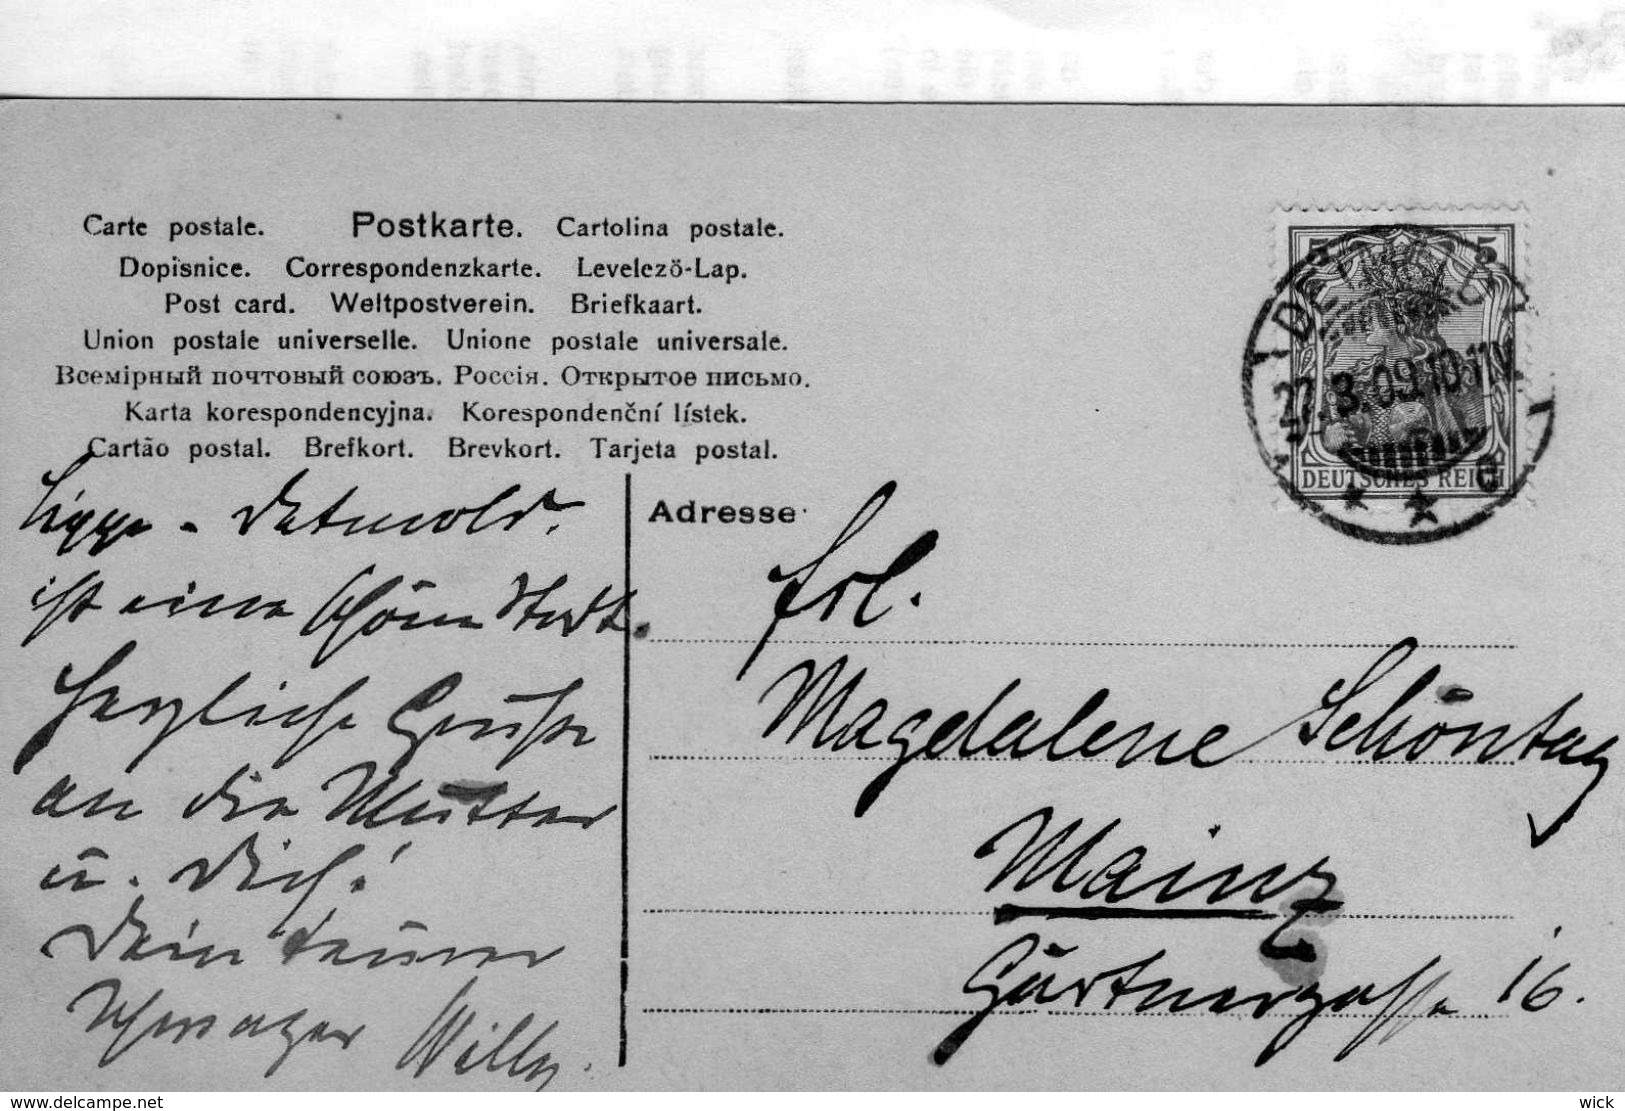 Carte postale. Postkarte. Cartolina postale.
Dopisnice. Correspondenzkarte. Levelező-Lap.
Post card. Weltpostverein. Briefkaart.
Union postale universelle. Unione postale universale.
Всемірный почтовый союзъ. Россія. Открытое письмо.
Karta korespondencyjna. Korespondenční lístek.
Cartão postal. Brefkort. Brevkort. Tarjeta postal.
Lippe - Detmold.
ist eine schöne Stadt.
Herzliche Grüße
an die Mutter
u. Dich!
Dein treuer
Schwager Willy.
5 5
27.3.09.10-11V
DEUTSCHES REICH
Adresse
Frl.
Magdalene Schöntag
Mainz
Gärtnergasse 16.
www.delcampe.net
wick